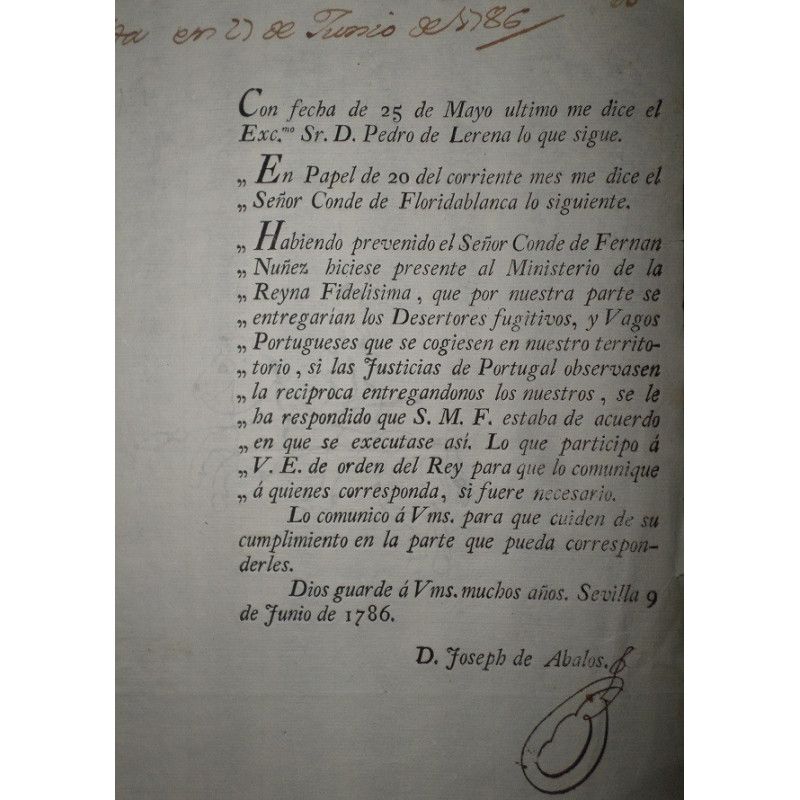 en 27 de Junio de 1786
Con fecha de 25 de Mayo ultimo me dice el
Exc.mo Sr. D. Pedro de Lerena lo que sigue.
„ En Papel de 20 del corriente mes me dice el
„ Señor Conde de Floridablanca lo siguiente.
„ Habiendo prevenido el Señor Conde de Fernan
„ Nuñez hiciese presente al Ministerio de la
„ Reyna Fidelisima, que por nuestra parte se
„ entregarían los Desertores fugitivos, y Vagos
„ Portugueses que se cogiesen en nuestro territo-
„ torio, si las Justicias de Portugal observasen
„ la reciproca entregandonos los nuestros, se le
„ ha respondido que S. M. F. estaba de acuerdo
„ en que se executase así. Lo que participo á
„ V. E. de orden del Rey para que lo comunique
„ á quienes corresponda, si fuere necesario.
Lo comunico á Vms. para que cuiden de su
cumplimiento en la parte que pueda correspon-
derles.
Dios guarde á Vms. muchos años. Sevilla 9
de Junio de 1786.
D. Joseph de Abalos.